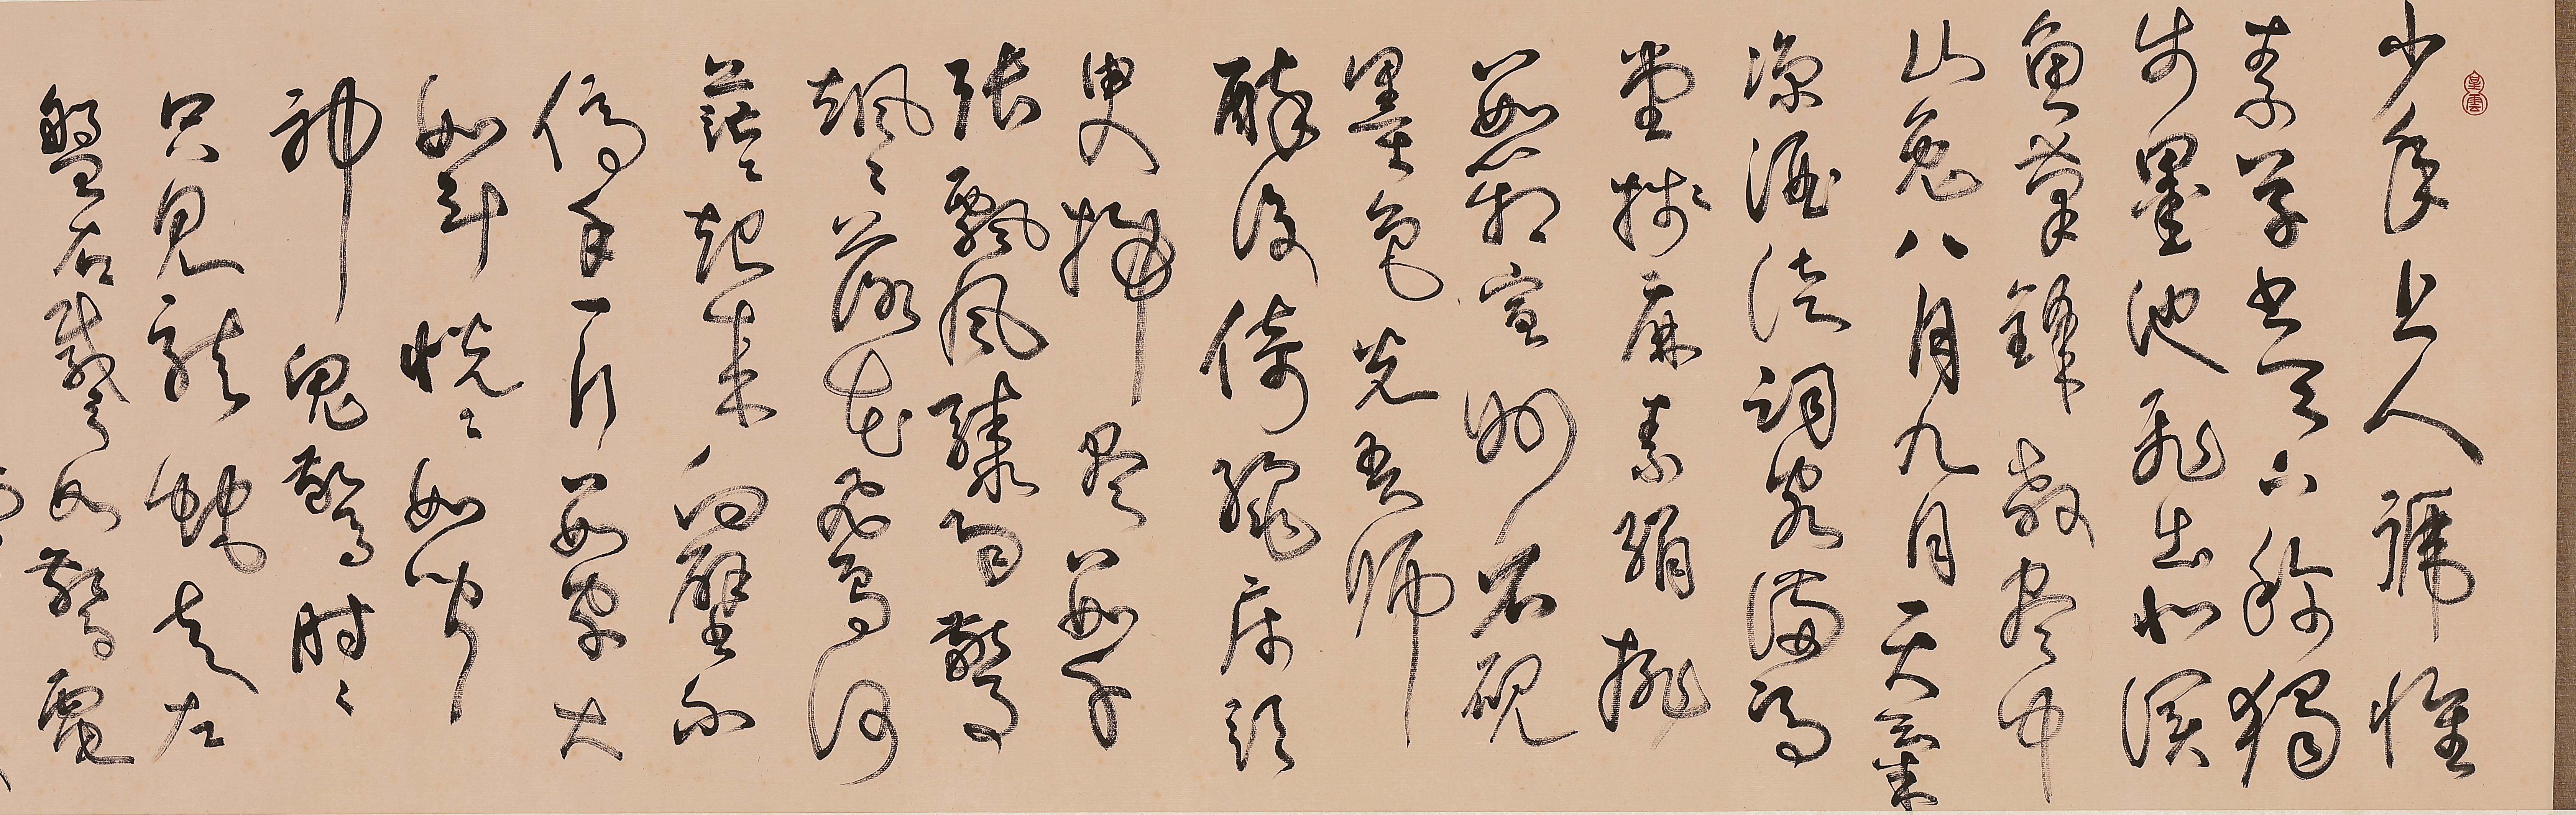 少年上人號懷
素草書天下稱獨
步墨池飛出北溟
魚筆鋒殺盡中
山兔八月九月天氣
涼酒徒詞客滿高
堂牋麻素絹排
數箱宣州石硯
墨色光吾師
醉後倚繩床須
臾掃盡數千
張飄風驟雨驚
颯々落花飛雪何
茫々起來向壁不
停手一行數字大
如斗恍々如聞
神鬼驚時々
只見龍蛇走左
盤右蹙如驚電